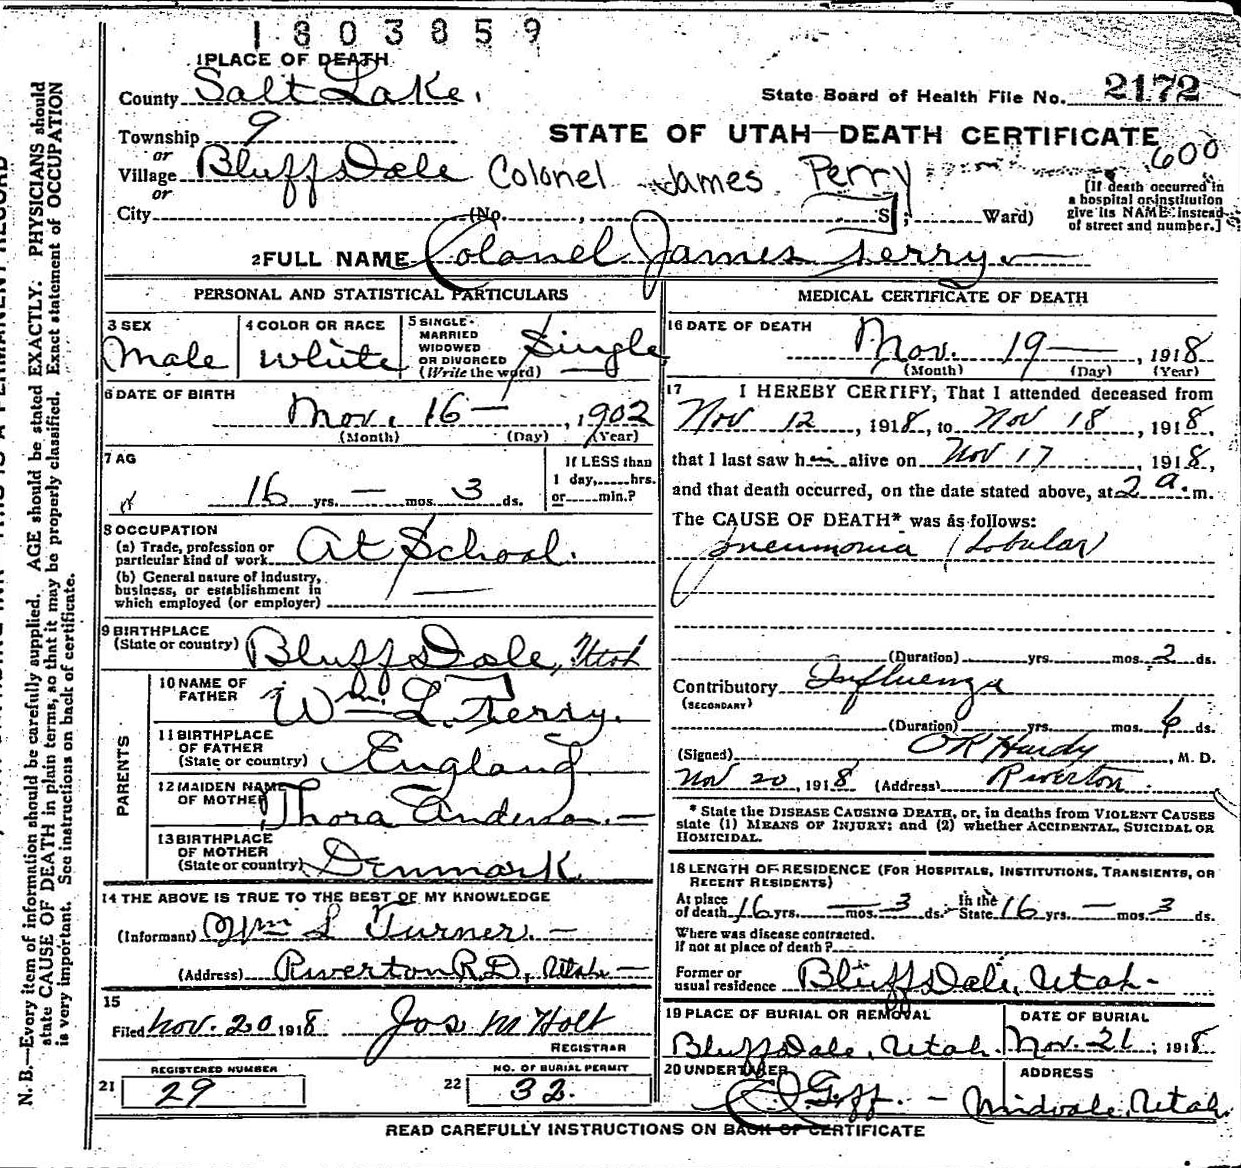 1803859
1 PLACE OF DEATH
County Salt Lake.
State Board of Health File No. 2172
Township 9
or
STATE OF UTAH—DEATH CERTIFICATE
600
Village Bluffs Dale Colonel James Perry
or
[If death occurred in
a hospital or institution
give its NAME instead
of street and number.]
City (No. , S ; Ward)
2 FULL NAME Colonel James Terry
PERSONAL AND STATISTICAL PARTICULARS
3 SEX Male
4 COLOR OR RACE White
5 SINGLE
MARRIED
WIDOWED
OR DIVORCED
(Write the word) Single
6 DATE OF BIRTH
Nov. 16 — , 1902
(Month) (Day) (Year)
7 AG
16 yrs. — mos. 3 ds.
If LESS than
1 day, hrs.
or min.?
8 OCCUPATION
(a) Trade, profession or
particular kind of work At School.
(b) General nature of Industry,
business, or establishment in
which employed (or employer) —
9 BIRTHPLACE
(State or country) Bluffs Dale, Utah
PARENTS
10 NAME OF
FATHER Wm L. Terry.
11 BIRTHPLACE
OF FATHER
(State or country) England
12 MAIDEN NAME
OF MOTHER Thora
13 BIRTHPLACE
OF MOTHER
(State or country) Denmark
14 THE ABOVE IS TRUE TO THE BEST OF MY KNOWLEDGE
(Informant) Wm L Turner. —
(Address) Riverton R.D., Utah —
15
Filed Nov. 20 1918 Jos M Holt
REGISTRAR
21 REGISTERED NUMBER
29
22 NO. OF BURIAL PERMIT
32.
MEDICAL CERTIFICATE OF DEATH
16 DATE OF DEATH
Nov. 19 — , 1918
(Month) (Day) (Year)
17 I HEREBY CERTIFY, That I attended deceased from
Nov 12 , 1918, to Nov 18 , 1918,
that I last saw him alive on Nov 17 , 1918,
and that death occurred, on the date stated above, at 2 a. m.
The CAUSE OF DEATH* was as follows:
Pneumonia (Lobular)
(Duration) yrs. mos. 2 ds.
Contributory Influenza
(SECONDARY)
(Duration) yrs. mos. 6 ds.
(Signed) O R Hardy , M. D.
Nov 20, 1918 (Address) Riverton.
* State the DISEASE CAUSING DEATH, or, in deaths from VIOLENT CAUSES
state (1) MEANS OF INJURY; and (2) whether ACCIDENTAL, SUICIDAL OR
HOMICIDAL.
18 LENGTH OF RESIDENCE (FOR HOSPITALS, INSTITUTIONS, TRANSIENTS, OR
RECENT RESIDENTS)
At place
of death 16 yrs. — mos. 3 ds. In the
State 16 yrs. — mos. 3 ds.
Where was disease contracted.
If not at place of death?
Former or
usual residence Bluffs Dale, Utah.
19 PLACE OF BURIAL OR REMOVAL
Bluffs Dale, Utah.
DATE OF BURIAL
Nov. 21 , 1918
20 UNDERTAKER
Goff. —
ADDRESS
Midvale, Utah.
READ CAREFULLY INSTRUCTIONS ON BACK OF CERTIFICATE
N. B.—Every item of information should be carefully supplied. AGE should be stated EXACTLY. PHYSICIANS should
state CAUSE OF DEATH in plain terms, so that it may be properly classified. Exact statement of OCCUPATION
is very important. See instructions on back of certificate.